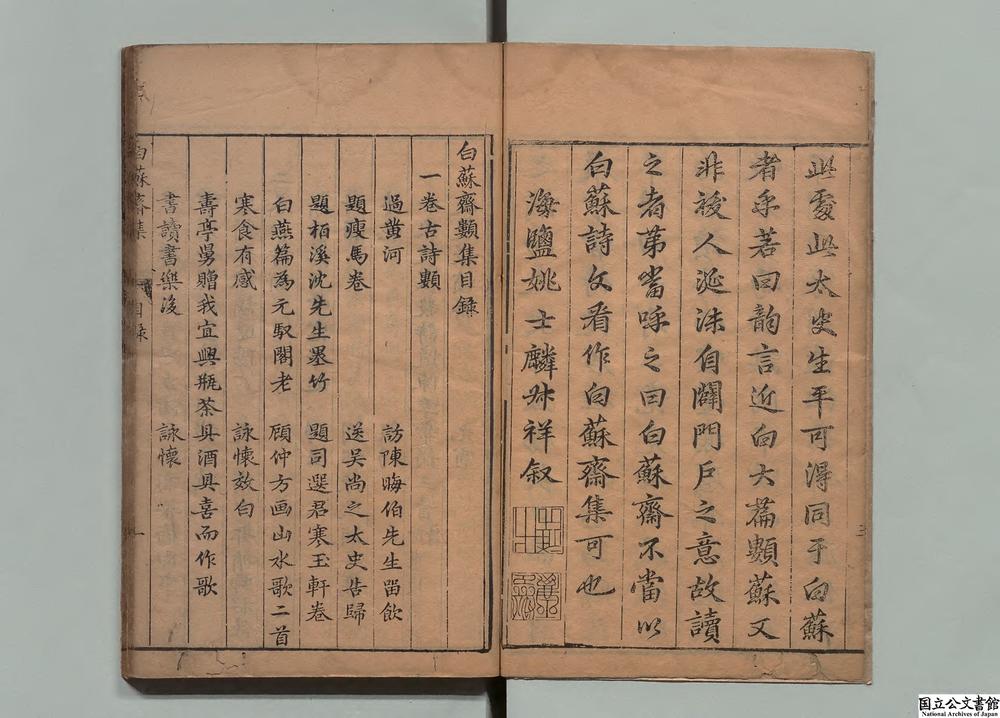 此處此太史生平可得同于白蘇
者乎若曰韵言近白大篇類蘇又
非後人涎沫自闢門戶之意故讀
之者苐當呼之曰白蘇齋不當以
白蘇詩文看作白蘇齋集可也
海鹽姚士麟叔祥叙
白蘇齋類集目録
一卷古詩類
過黄河 訪陳晦伯先生畱飲
題瘦馬卷 送吳尚之太史告歸
題栢溪沈先生墨竹 題司選君寒玉軒卷
白燕篇為元馭閣老 顧仲方画山水歌二首
寒食有感 詠懷效白
壽亭舅贈我宜興瓶茶具酒具喜而作歌
書讀書樂後 詠懷
白蘇齋集 目録 一
国立公文書館
National Archives of Japan